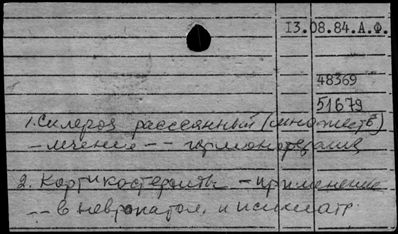 13.08.84.А.Ф.
48369
51679
1. Склероз рассеянный (множеств)
- лечение -- гормонотерапия
2. Кортикостероиды - применение
-- в невропатол. и психиатр.